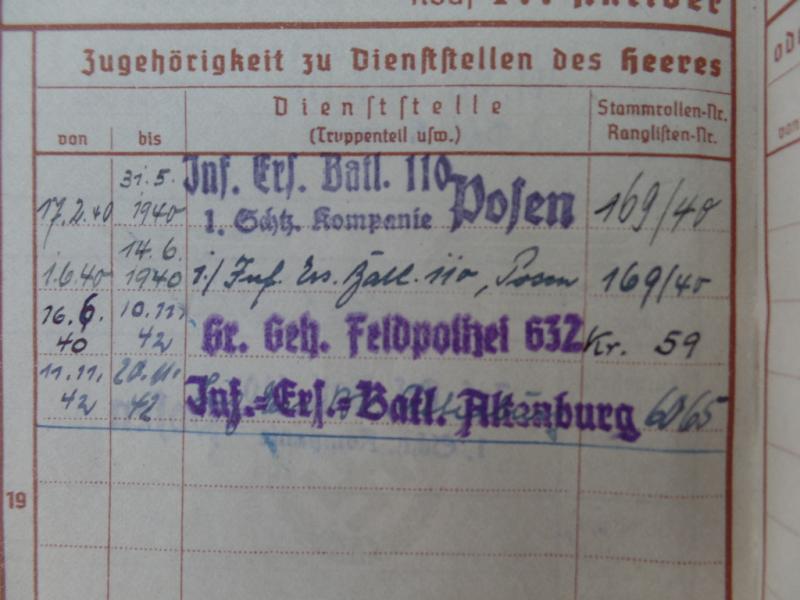 Zugehörigkeit zu Dienststellen des Heeres
von bis Dienststelle (Truppenteil usw.) Stammrollen-Nr. Ranglisten-Nr.
17.2.40 31.5.1940 Inf. Ers. Batl. 110 Posen 1. Schtz. Kompanie 169/40
1.6.40 14.6.1940 1./Inf. Ers. Batl. 110, Posen 169/40
16.6.40 10.11.42 Gr. Geh. Feldpolizei 632 Nr. 59
11.11.42 20.11.42 Inf.-Ers.-Batl. Altenburg 6065
19